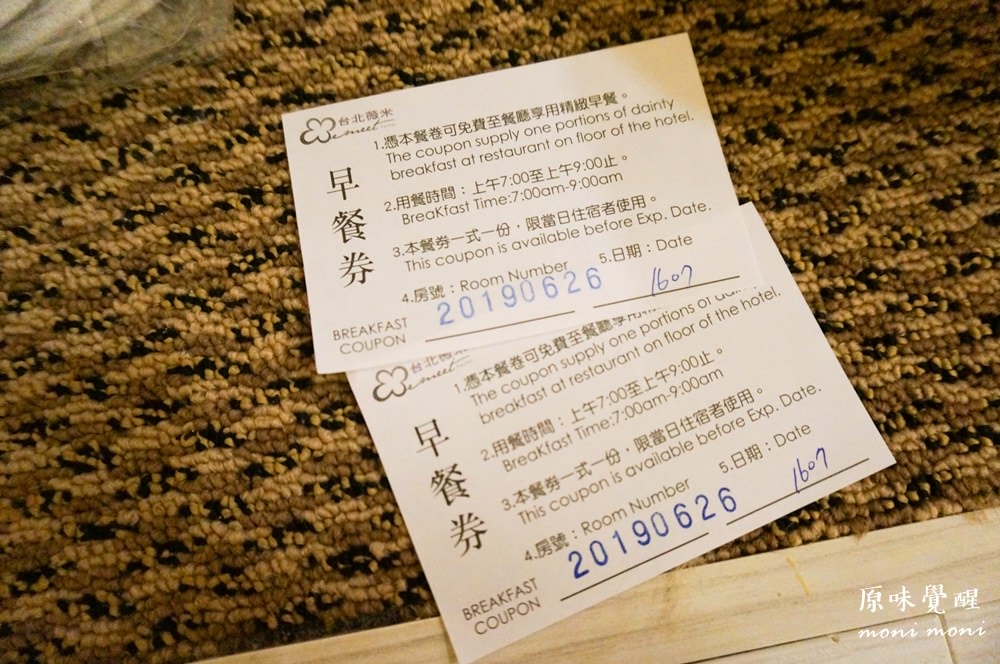 台北薇米
emeet
早餐券
BREAKFAST
COUPON
1.憑本餐卷可免費至餐廳享用精緻早餐。
The coupon supply one portions of dainty
breakfast at restaurant on floor of the hotel.
2.用餐時間：上午7:00至上午9:00止。
BreaKfast Time:7:00am-9:00am
3.本餐券一式一份，限當日住宿者使用。
This coupon is available before Exp. Date.
4.房號：Room Number
20190626
5.日期：Date
1607
台北薇米
emeet
早餐券
BREAKFAST
COUPON
1.憑本餐卷可免費至餐廳享用
The coupon supply one portions of dainty
breakfast at restaurant on floor of the hotel.
2.用餐時間：上午7:00至上午9:00止。
BreaKfast Time:7:00am-9:00am
3.本餐券一式一份，限當日住宿者使用。
This coupon is available before Exp. Date.
4.房號：Room Number
20190626
5.日期：Date
1607
原味覺醒
moni moni